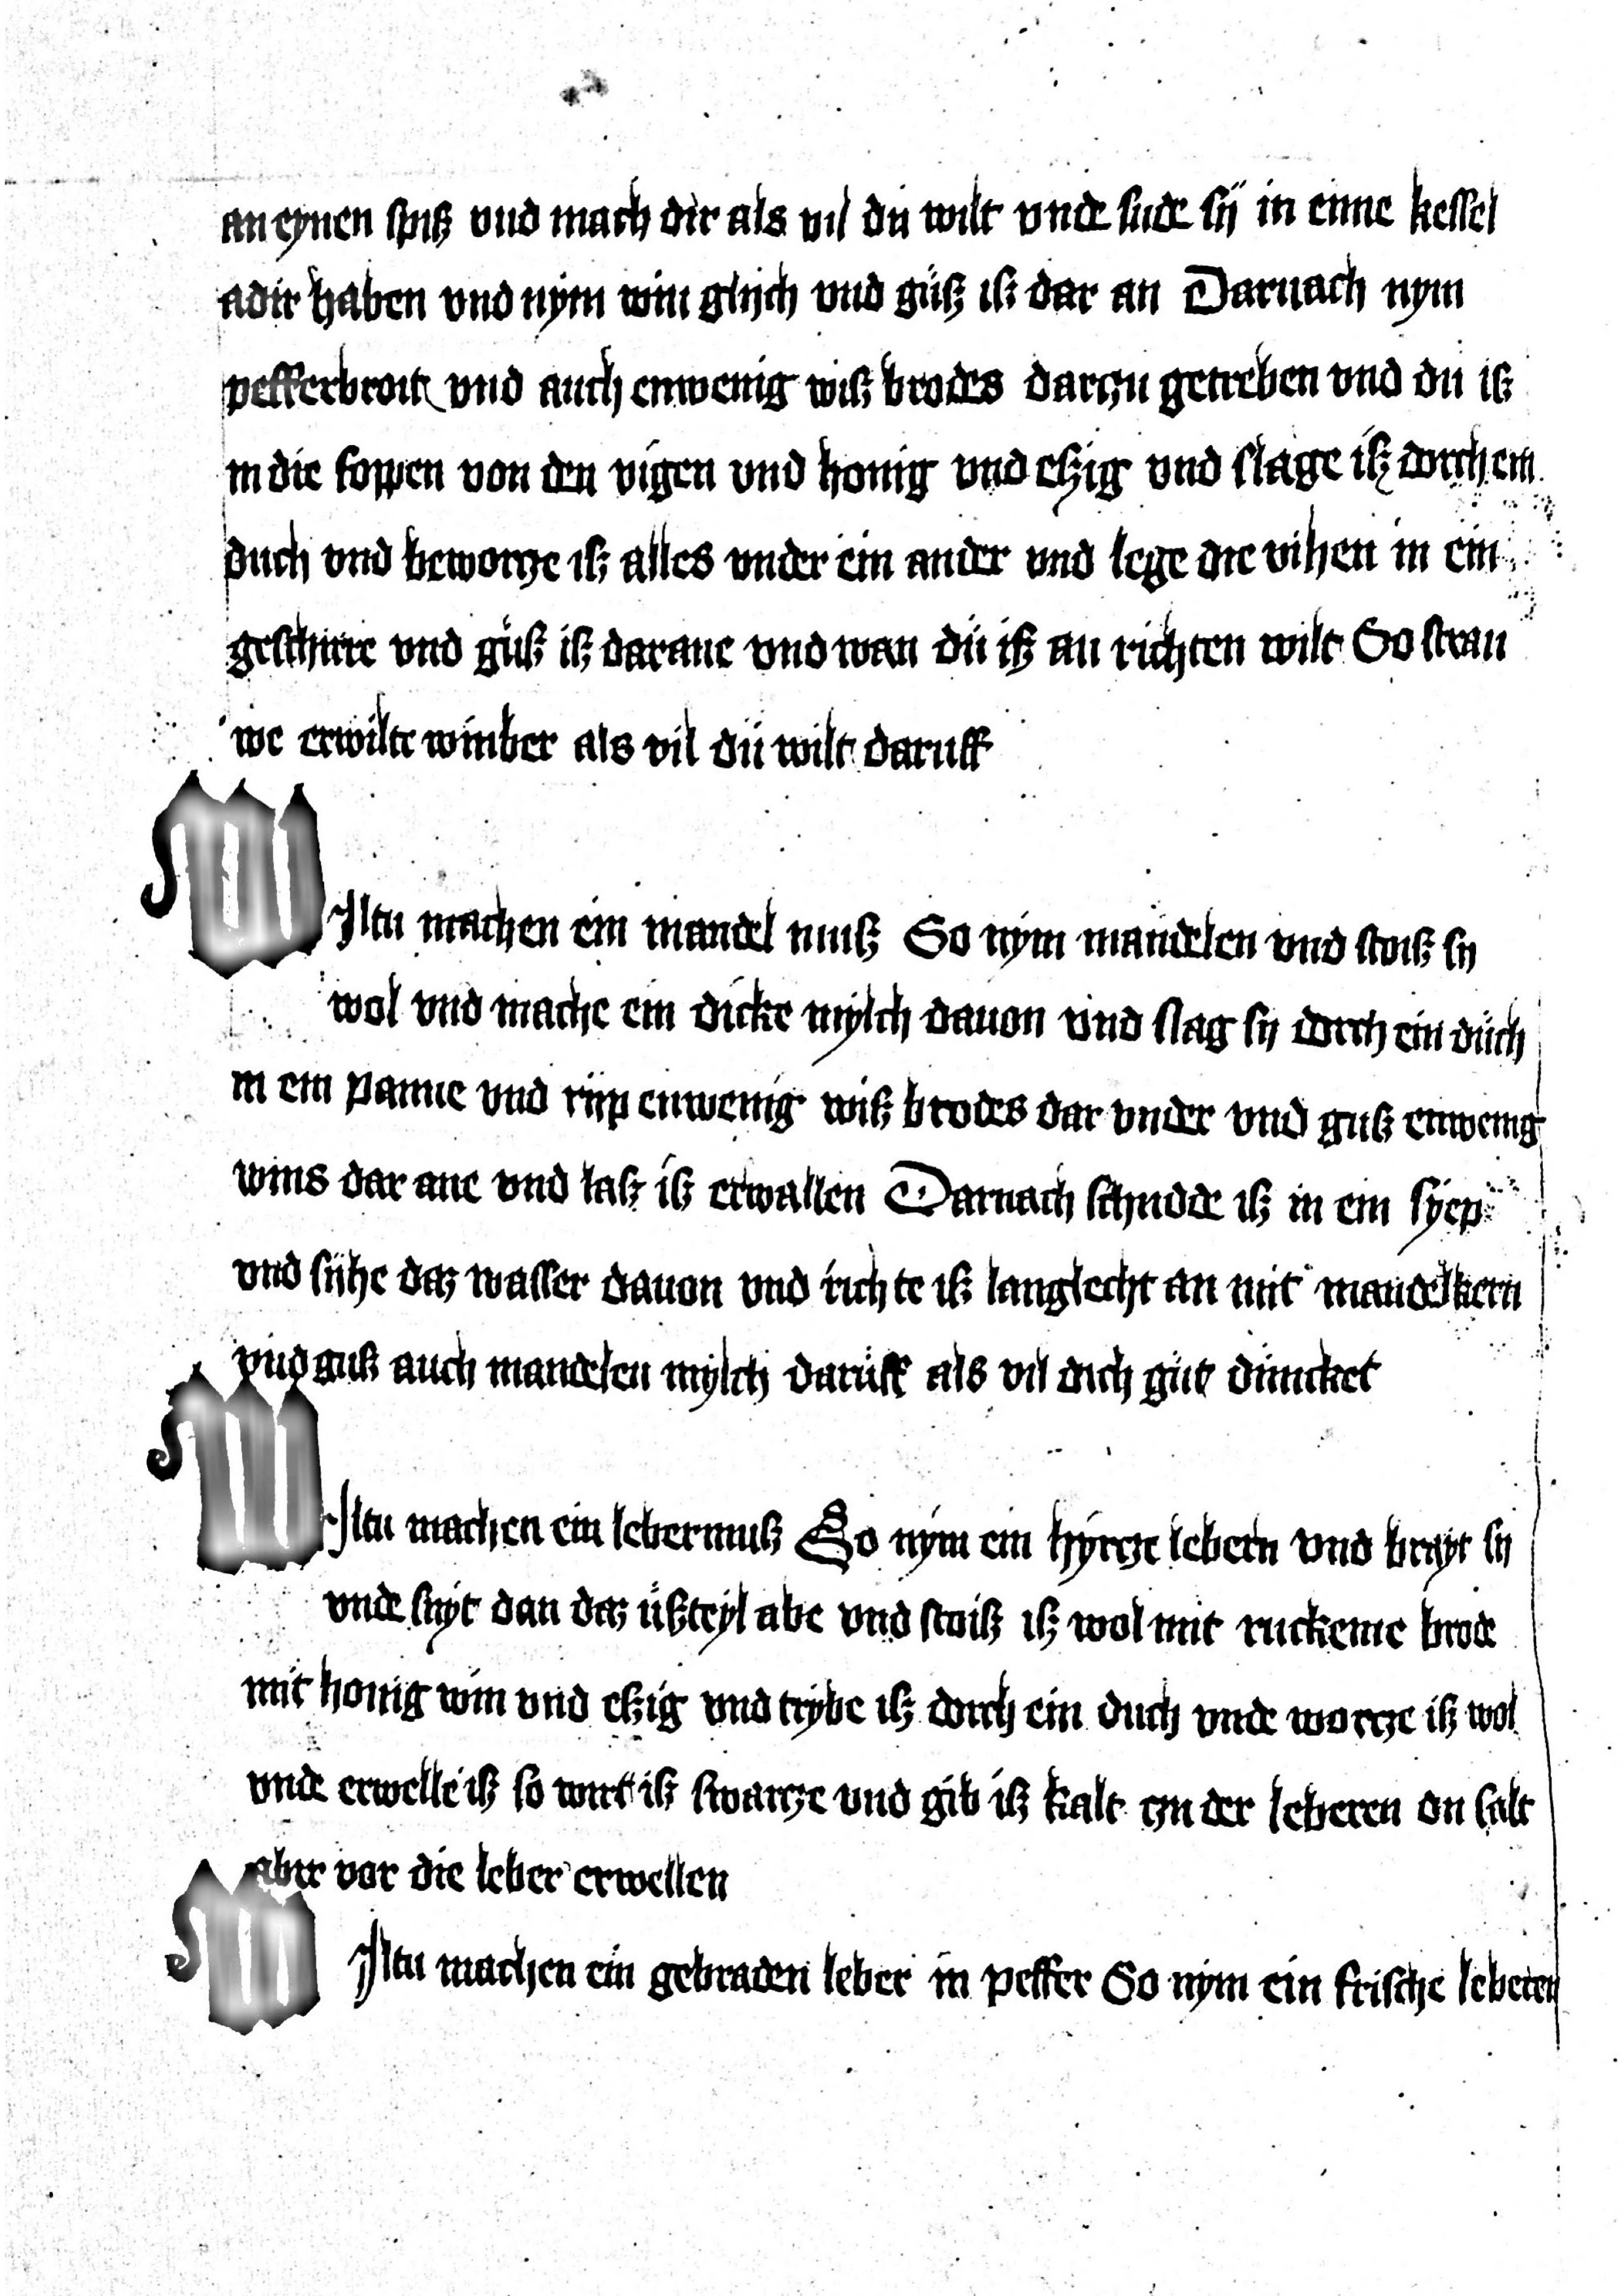 an eynen spiß vnd mach dir als vil du wilt vnde sude sij in eine kessel
adir haben vnd nym win glijch vnd guß iß dar an Darnach nym
pefferbroit vnd auch enwenig wiß brodes darzu getreben vnd du iß
in die soppen von den vigen vnd honig vnd eßig vnd slage iß dorch ein
duch vnd beworcze iß alles vnder ein ander vnd lege die vihen in ein
geschirre vnd guß iß darane vnd wan du iß an richten wilt So strau
we erwilte winber als vil du wilt daruff
WIltu machen ein mandel muß So nym mandelen vnd stoiß sij
wol vnd mache ein dicke mylch dauon vnd slag sij dorch ein duch
in ein panne vnd rijp enwenig wiß brodes dar vnder vnd guß enwenig
wins dar ane vnd laß iß erwallen Darnach schudde iß in ein syep
vnd sihe daz wasser dauon vnd richte iß langlecht an mit mandelkern
vnd guß auch mandelen mylch daruff als vil dich gut duncket
WIltu machen ein lebermuß So nym ein hyrcze lebern vnd brayt sij
vnde snyt dan daz ußteyl abe vnd stoiß iß wol mit ruckeme brode
mit honig win vnd eßig vnd trybe iß dorch ein duch vnde worcze iß wol
vnde erwelle iß so wirt iß swarcze vnd gib iß kalt czu der leberen du salt
aber vor die leber erwellen
WIltu machen ein gebraden leber in peffer So nym ein frische leberen